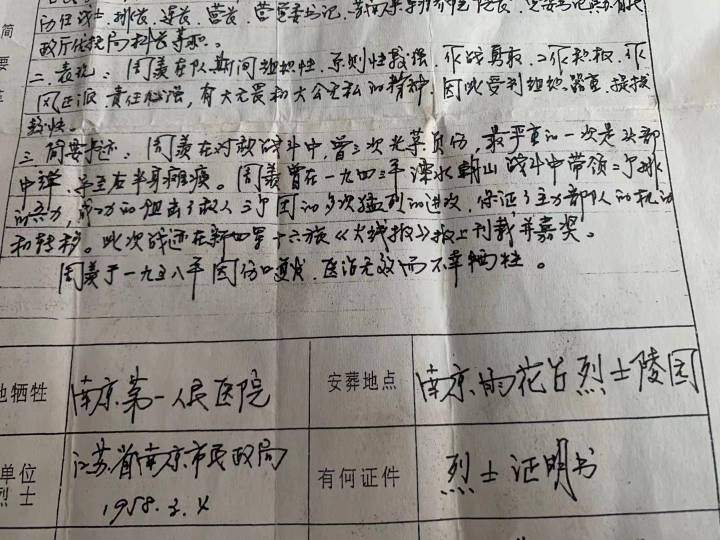 简
历任战士、排长、连长、营长、营党委书记、
要
政厅优抚局科长等职。
二、表现:周羡在队期间组织性、原则性较强,作战勇敢,工作积极,作
风正派,责任心强,有大无畏和大公无私的精神,因此受到组织器重,提拔
较快。
三、简要事迹:周羡在对敌战斗中,曾三次光荣负伤,最严重的一次是头部
中弹,导至右半身瘫痪。周羡曾在一九四三年溧水 战斗中带领二个排
的兵力,成功的阻击了敌人三个团的多次猛烈的进攻,保证了主力部队的机动
和转移。此次战迹在新四军十六旅《火线报》报上刊载并嘉奖。
周羡于一九五八年因伤口复发,医治无效而不幸牺牲。
地牺牲 南京第一人民医院 安葬地点 南京雨花台烈士陵园
单位 江苏省南京市民政局 有何证件 烈士证明书
烈士 1958.3.4